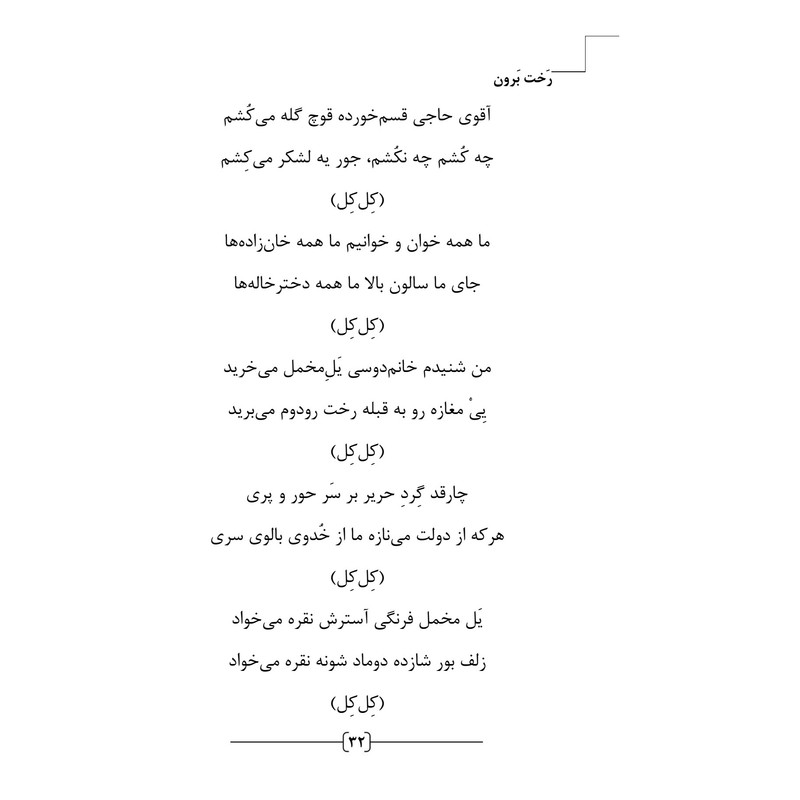 رَخت بَرون
آقوی حاجی قسم‌خورده قوچ گله می‌کُشم
چه کُشم چه نکُشم، جور یه لشکر می‌کِشم
(کِل‌کِل)
ما همه خوان و خوانیم ما همه خان‌زاده‌ها
جای ما سالون بالا ما همه دخترخاله‌ها
(کِل‌کِل)
من شنیدم خانم‌دوسی یَلِ‌مخمل می‌خرید
پِیْ مغازه رو به قبله رخت رودوم می‌برید
(کِل‌کِل)
چارقد گِردِ حریر بر سَر حور و پری
هرکه از دولت می‌نازه ما از خُدوی بالوی سری
(کِل‌کِل)
یَل مخمل فرنگی آسترش نقره می‌خواد
زلف بور شازده دوماد شونه نقره می‌خواد
(کِل‌کِل)
۳۲